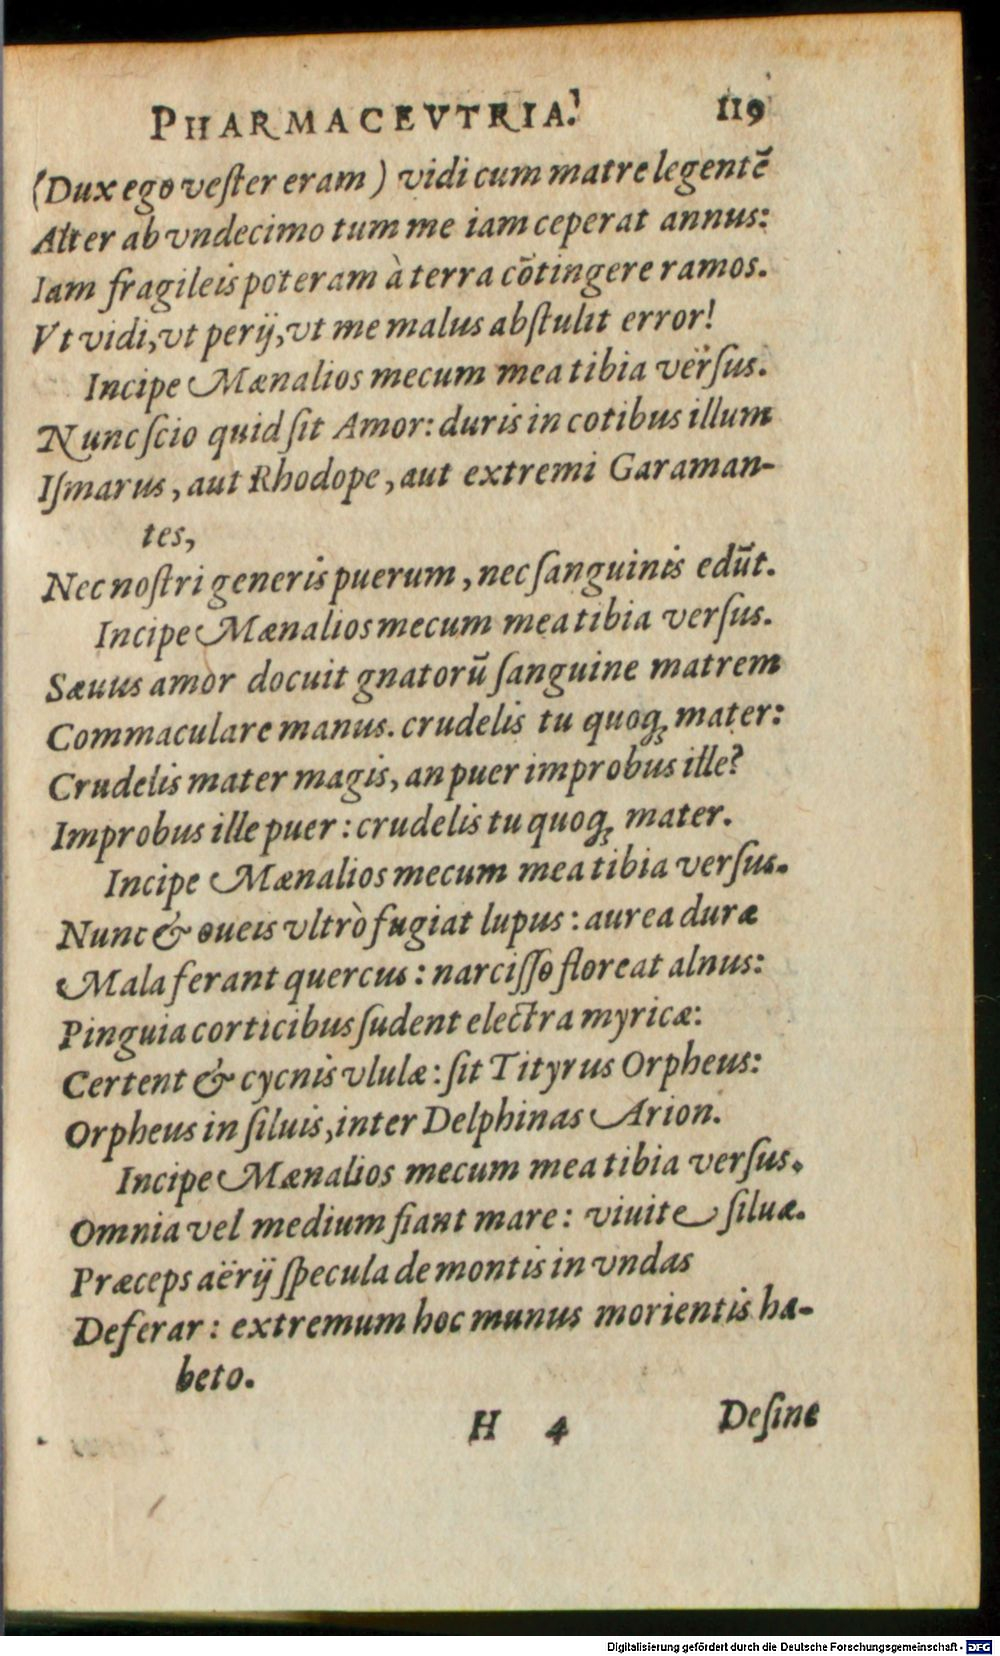 PHARMACEVTRIA. 119
(Dux ego veſter eram) vidi cum matre legentē
Alter ab vndecimo tum me iam ceperat annus:
Iam fragileis poteram à terra cōtingere ramos.
Vt vidi, vt perij, vt me malus abſtulit error!
Incipe Mænalios mecum mea tibia verſus.
Nunc ſcio quid ſit Amor: duris in cotibus illum
Iſmarus, aut Rhodope, aut extremi Garaman-
tes,
Nec noſtri generis puerum, nec ſanguinis edūt.
Incipe Mænalios mecum mea tibia verſus.
Sæuus amor docuit gnatorū ſanguine matrem
Commaculare manus. crudelis tu quoqꝫ mater:
Crudelis mater magis, an puer improbus ille?
Improbus ille puer: crudelis tu quoqꝫ mater.
Incipe Mænalios mecum mea tibia verſus.
Nunc & oueis vltrò fugiat lupus: aurea duræ
Mala ferant quercus: narciſſo floreat alnus:
Pinguia corticibus ſudent electra myricæ:
Certent & cycnis vlulæ: ſit Tityrus Orpheus:
Orpheus in ſiluis, inter Delphinas Arion.
Incipe Mænalios mecum mea tibia verſus.
Omnia vel medium fiant mare: viuite ſiluæ.
Præceps aërij ſpecula de montis in vndas
Deferar: extremum hoc munus morientis ha-
beto.
H 4 Deſine
Digitalisierung gefördert durch die Deutsche Forschungsgemeinschaft - DFG